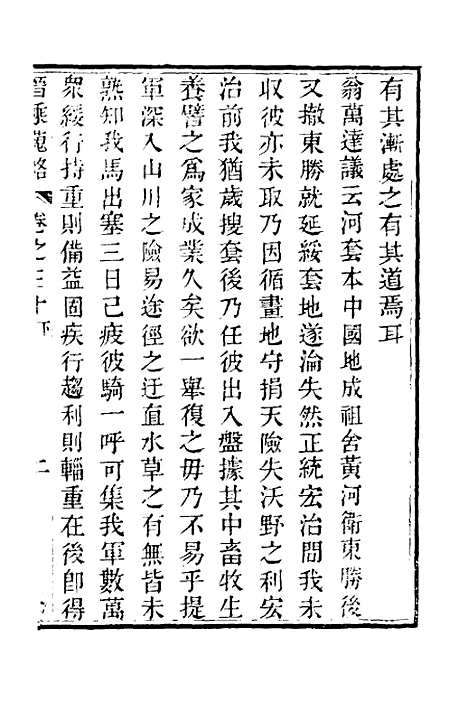 有其漸處之有其道焉耳
翁萬達議云河套本中國地成祖舍黃河衛東勝後
又撤東勝就延綏套地遂淪失然正統宏治間我未
收彼亦未取乃因循畫地守捐天險失沃野之利宏
治前我猶歲搜套後乃任彼出入盤據其中畜牧生
養譬之爲家成業久矣欲一舉復之毋乃不易乎提
軍深入山川之險易途徑之迂直水草之有無皆未
熟知我馬出塞三日已疲彼騎一呼可集我軍數萬
衆緩行持重則備益固疾行趨利則輜重在後卽得
晉乘蒐略 卷之三十 二